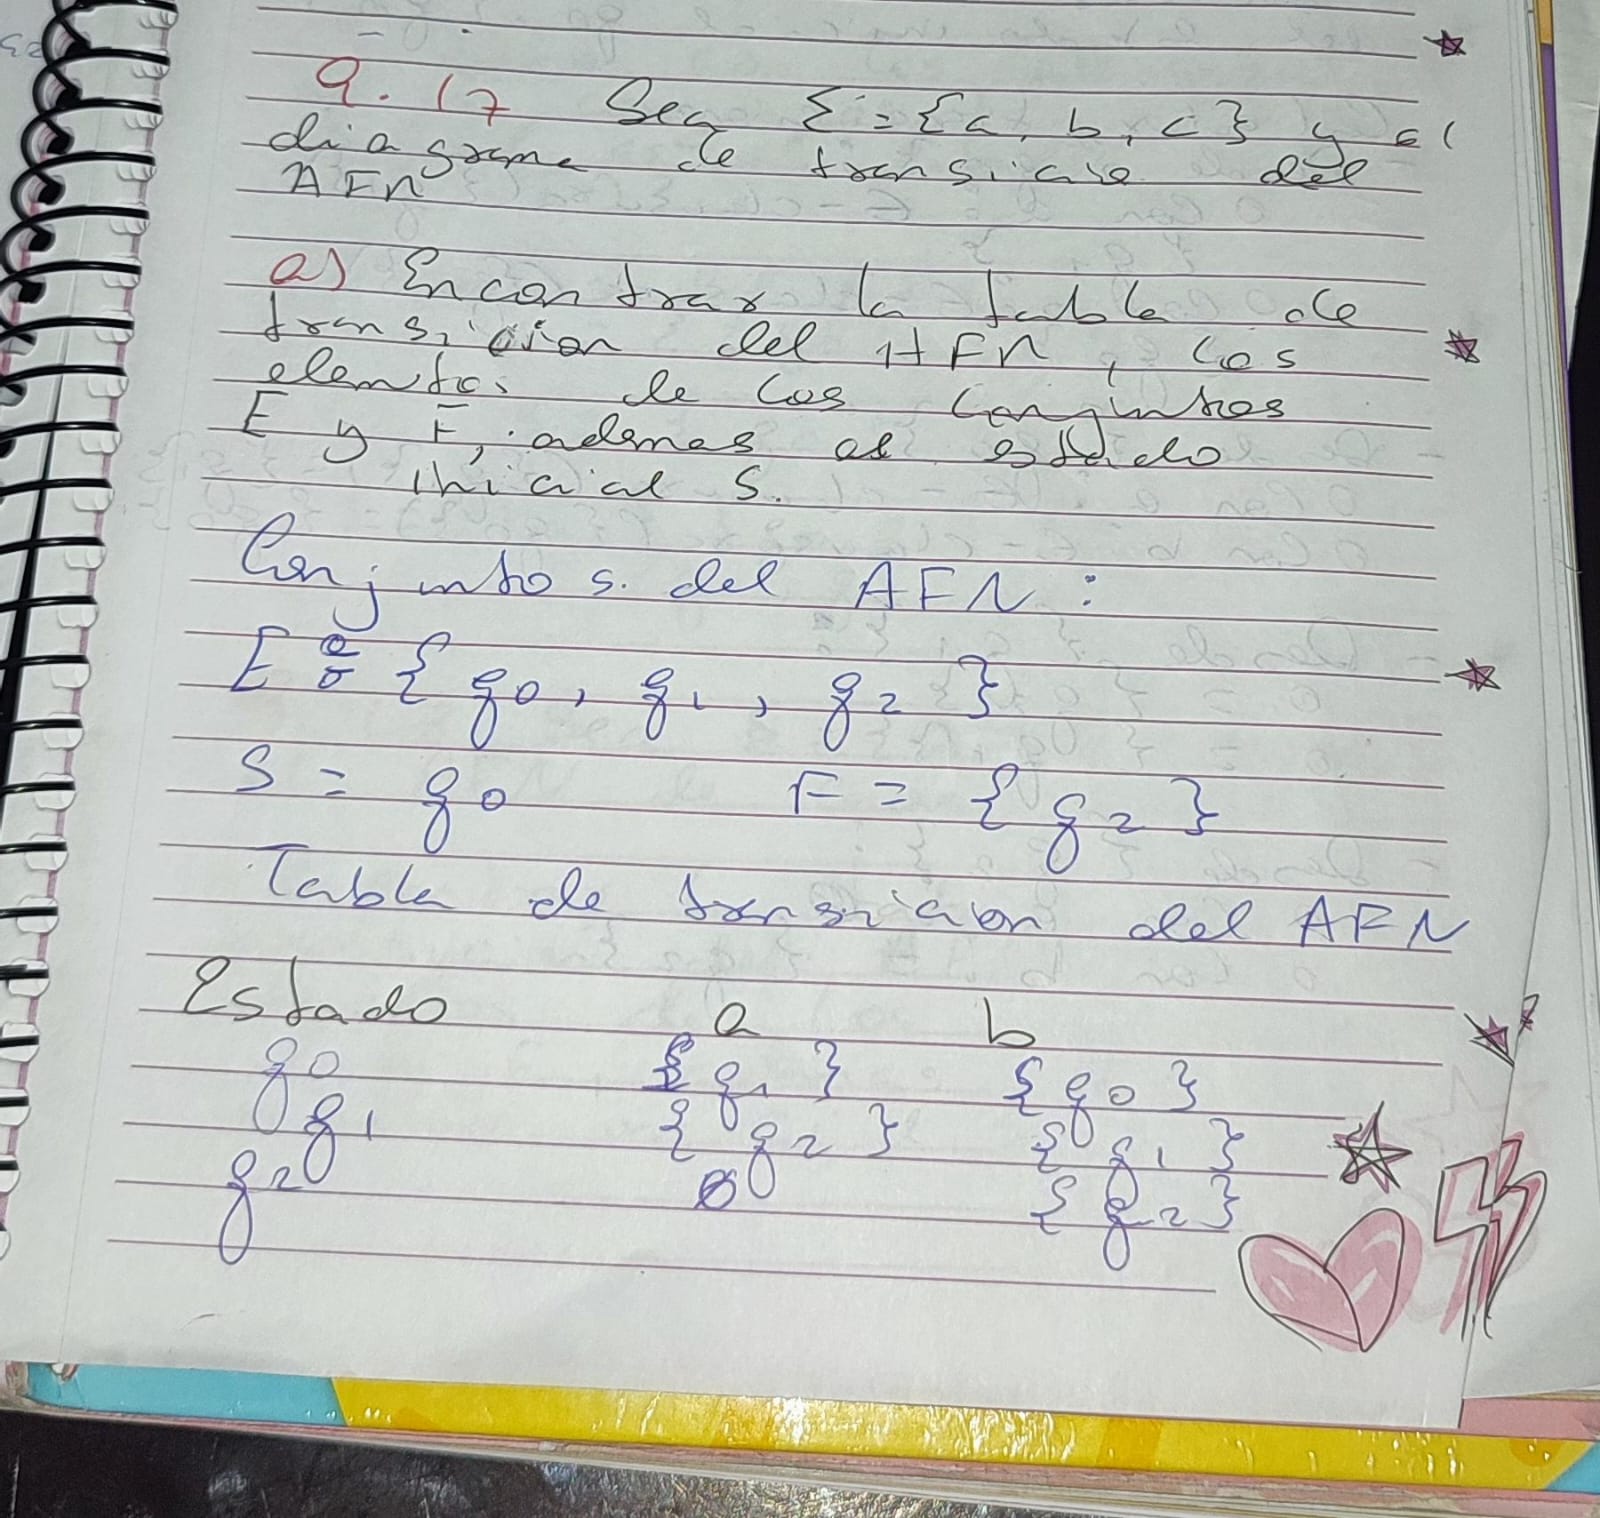 9.17 Sea Σ={a, b, c} y el
diagrama de transicion del
AFN
a) Encontrar la tabla de
transicion del AFN, los
elemtos de los conjuntos
E y F, ademas el estado
inicial S.
Conjuntos. del AFN:
E = {q0, q1, q2}
S = q0 F = {q2}
Tabla de transicion del AFN
Estado a b
q0 {q1} {q0}
q1 {q2} {q1}
q2 ø {q2}